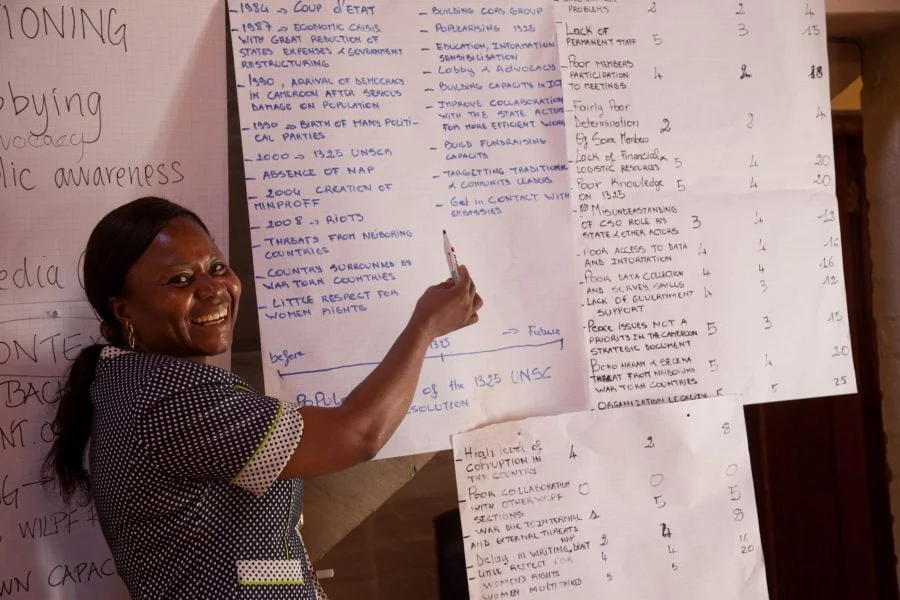 TIONING
bbying
vocacy
lic awareness
edia
ONTEX
BACK
NT.
WILPF
WN CAPAC
- 1984 → COUP d'ETAT
- 1987 → ECONOMIC CRISIS
WITH GREAT REDUCTION OF
STATES EXPENSES & GOVERNMENT
RESTRUCTURING
- 1990, ARRIVAL OF DEMOCRACY
IN CAMEROON AFTER SERIOUS
DAMAGE ON POPULATION
- 1990 → BIRTH OF MANY POLITI-
CAL PARTIES
- 2000 → 1325 UNSCR
- ABSENCE OF NAP
- 2004 CREATION OF
MINPROFF
- 2008 → RIOTS
- THREATS FROM NEIBORING
COUNTRIES
- COUNTRY SURROUNDED BY
WAR TORN COUNTRIES
- LITTLE RESPECT FOR
WOMEN RIGHTS
- BUILDING CORS GROUP
- POPULARISING 1325
- EDUCATION, INFORMATION
SENSIBILISATION
- LOBBY & ADVOCACY
- BUILDING CAPACITIES IN
- IMPROVE COLLABORATION
WITH THE STATE ACTORS
FOR MORE EFFICIENT WORK
- BUILD FUNDRAISING
CAPACITY
- TARGETTING TRADITIONAL
& COMMUNITY LEADERS
- Get in CONTACT WITH
EMBASSIES
before 1325 → Future
POPUL of the 1325 UNSC
ESOLUTION
PROBLEMS 2 2 4
- Lack of
PERMANENT STAFF 5 3 15
- Poor MEMBERS
PARTICIPATION 4 2 8
TO MEETINGS
- Fairly Poor
Determination 2 2 4
By Some Members
- Lack of Financial &
LOGISTIC RESOURCES 5 4 20
- Poor Knowledge 5 4 20
ON 1325
- MISUNDERSTANDING
OF CSO ROLE BY 3 4 12
STATE & OTHER ACTORS
- POOR ACCESS TO DATA 4 4 16
AND INFORMATION
- POOR DATA COLLECTION 4 4 16
AND SURVEY SKILLS
- LACK OF GOVERNMENT 4 3 12
SUPPORT
- PEACE ISSUES NOT A 5 3 15
PRIORITY IN THE CAMEROON
STRATEGIC DOCUMENT
- BOKO HARAM & SELEKA 5 4 20
THREAT FROM NEIBOURING
WAR TORN COUNTRIES
- ORGANIZATION LEGALITY 5 5 25
- High level of 4 2 8
CORRUPTION IN
THE COUNTRY
- Poor COLLABORATION 0 0 0
WITH OTHER WILPF
SECTIONS 5 5
- WAR DUE TO INTERNAL
AND EXTERNAL THREATS
- Delay in WRITING NAP 2 4 8
- LITTLE RESPECT FOR 4 4 16
WOMEN'S RIGHTS
- WOMEN MULTI 5 5